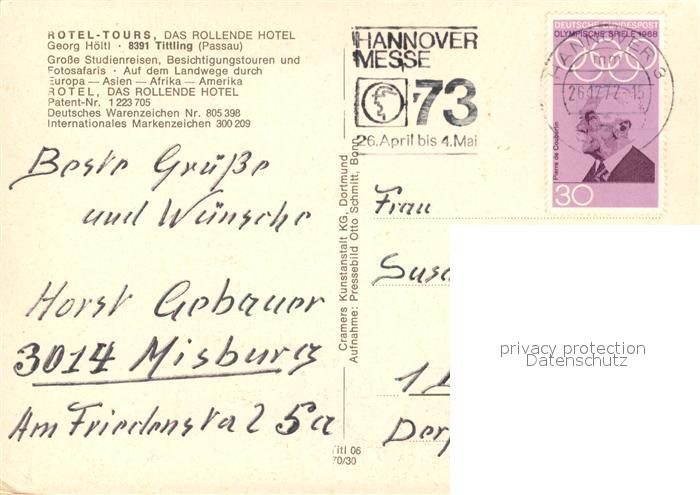 ROTEL-TOURS, DAS ROLLENDE HOTEL
Georg Höltl · 8391 Tittling (Passau)
Große Studienreisen, Besichtigungstouren und
Fotosafaris · Auf dem Landwege durch
Europa — Asien — Afrika — Amerika
ROTEL, DAS ROLLENDE HOTEL
Patent-Nr. 1 223 705
Deutsches Warenzeichen Nr. 805 398
Internationales Markenzeichen 300 209
Beste Grüße
und Wünsche
Horst Gebauer
3014 Misburg
Am Friedenstal 5a
Cramers Kunstanstalt KG, Dortmund
Aufnahme: Pressebild Otto Schmitt, Bonn
Titl 06
70/30
HANNOVER
MESSE
'73
26. April bis 4. Mai
DEUTSCHE BUNDESPOST
OLYMPISCHE SPIELE 1968
Pierre de Coubertin
30
HANNOVER 3
26.12.72-15
Frau
Susa
1
Der
privacy protection
Datenschutz